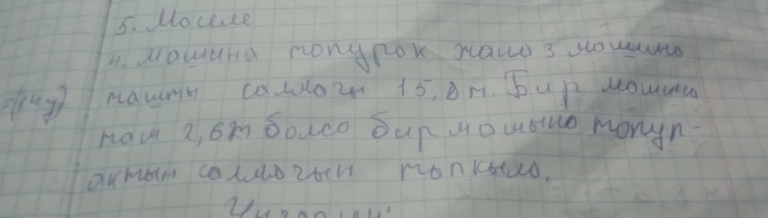 5. Моселе
4. машина топурок жана 3 машина
ташты салмагы 15,8т. Бир машина
таш 2,6т болсо бир машына топур-
актын салмагын тапкыла.